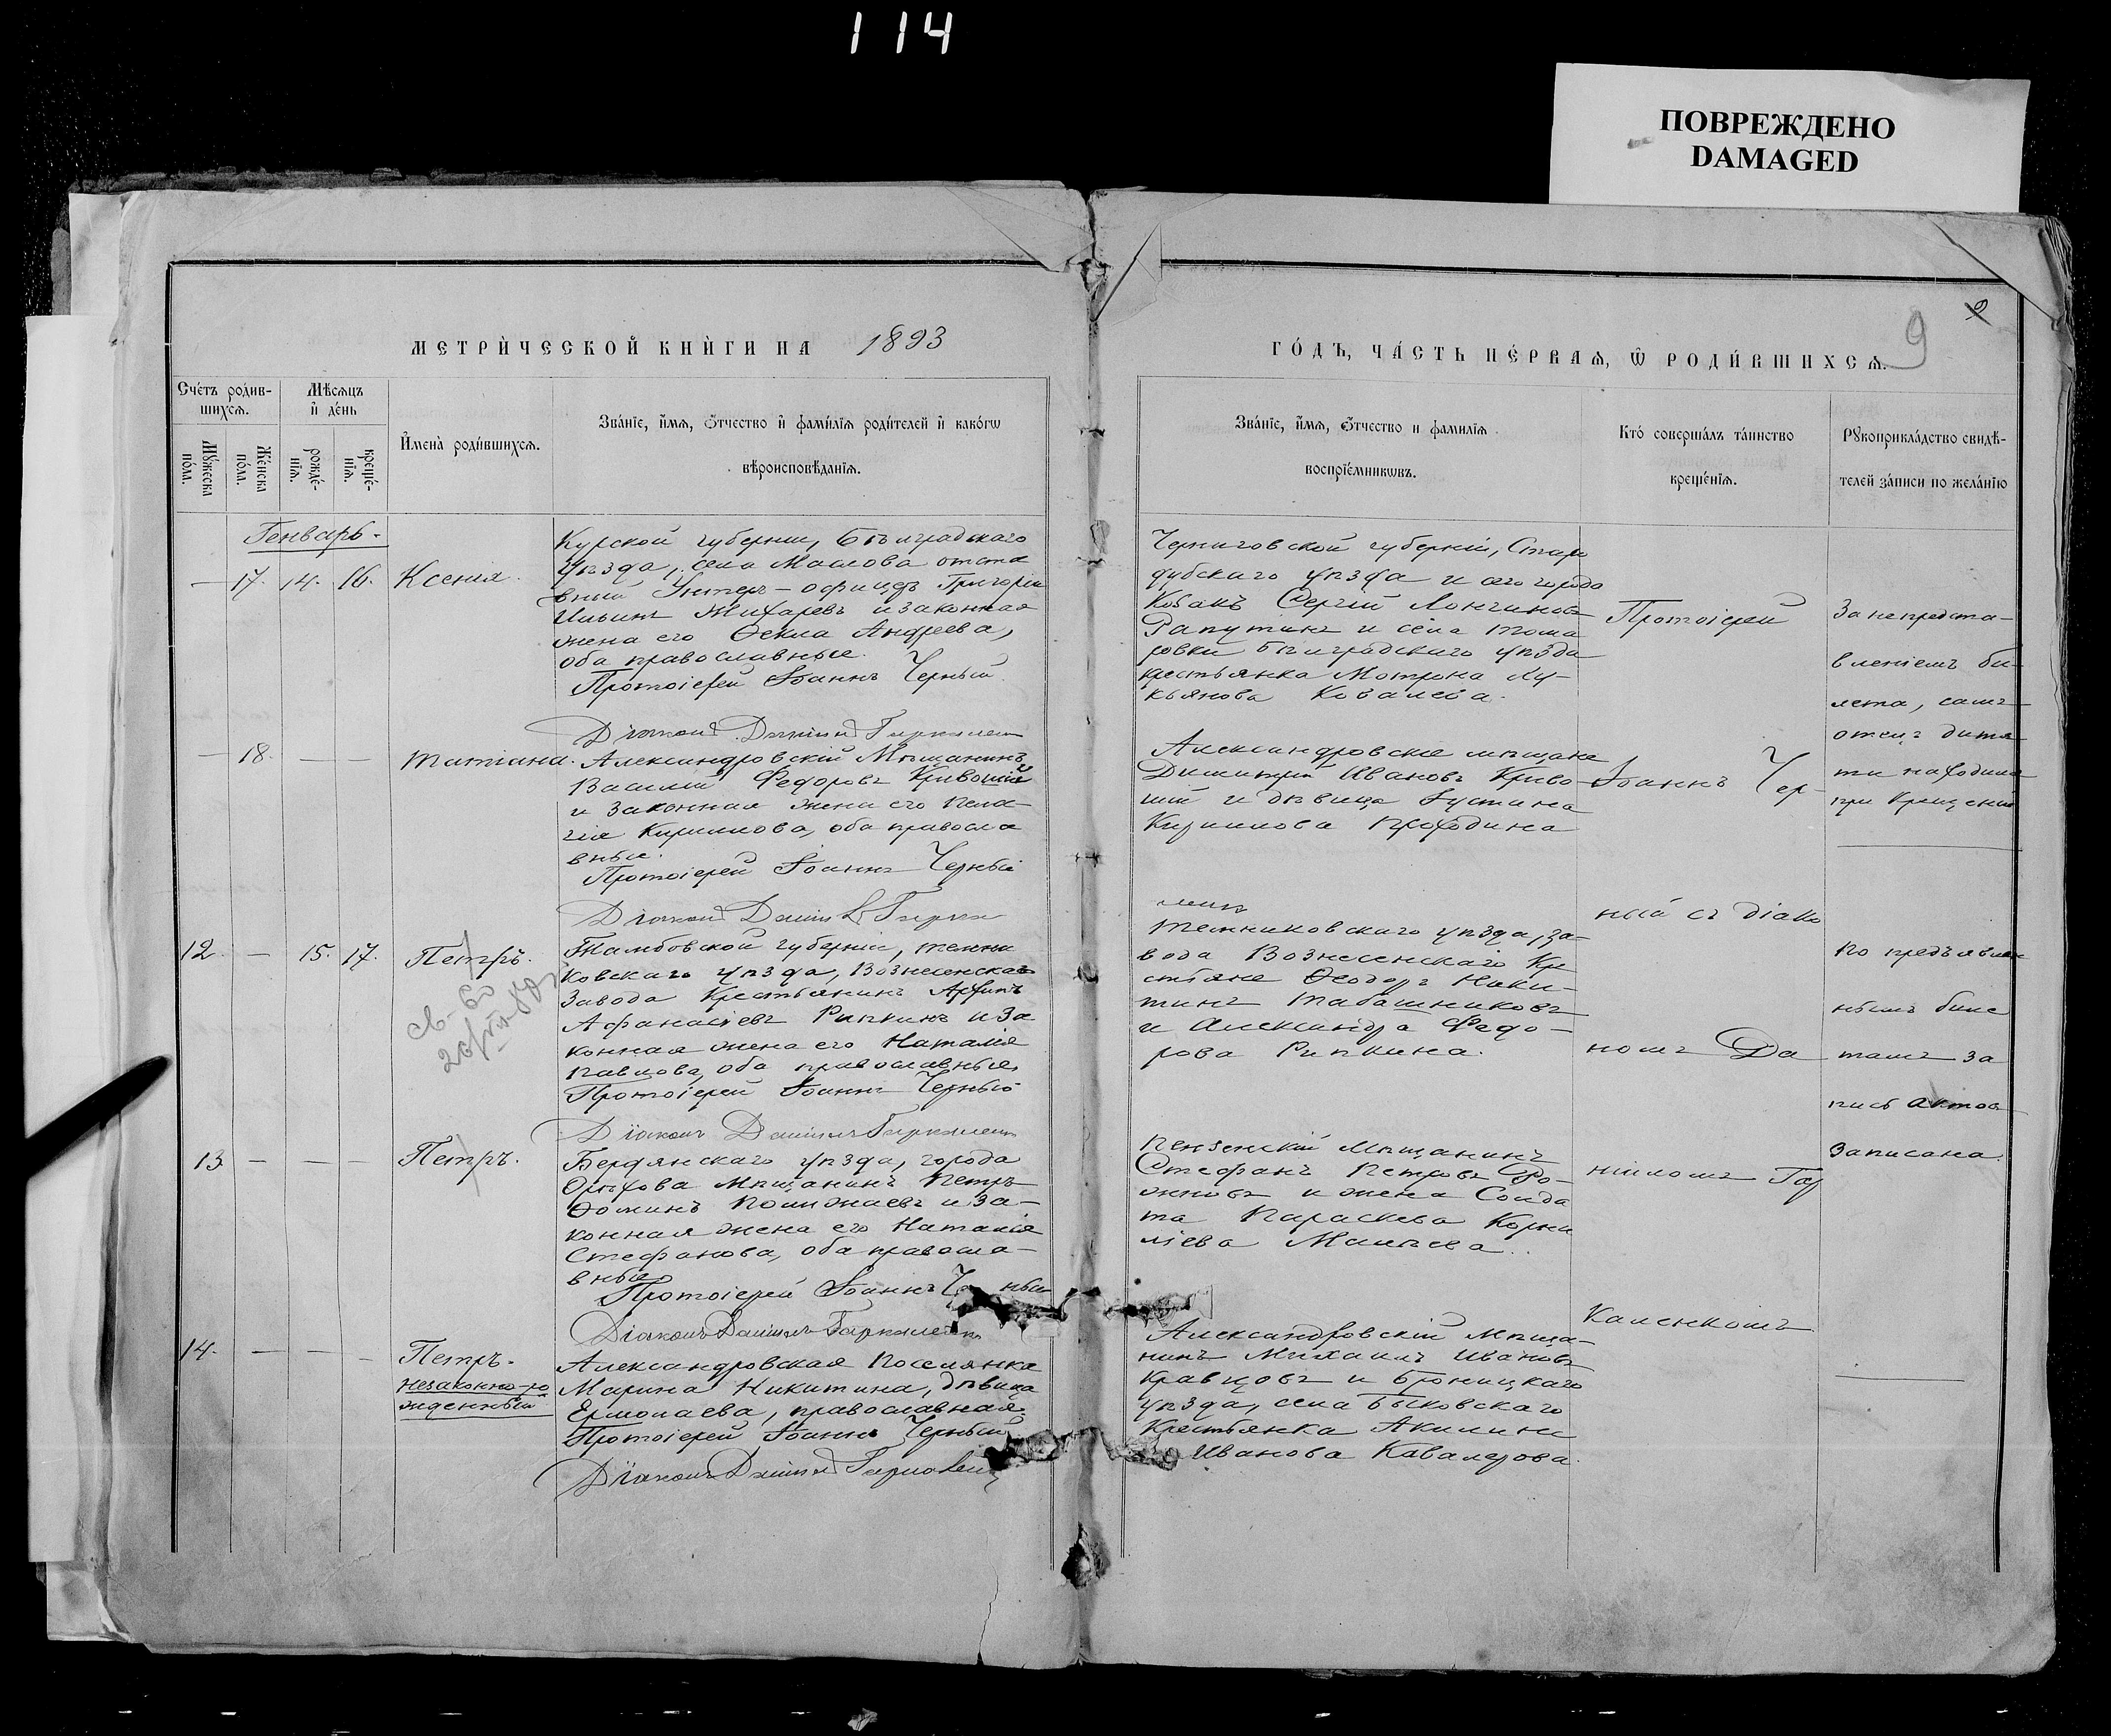 114
ПОВРЕЖДЕНО
DAMAGED
МЕТРИ́ЧЕСКОЙ КНИ́ГИ НА 1893
ГО́ДЪ, ЧА́СТЬ ПЕ́РВАѦ, Ѽ РОДИ́ВШИХСѦ.
9
9
Сче́тъ роди́в-
шихсѧ.
Мѣ́сѧцъ
и҆ де́нь
Му́жеска
по́ла.
Же́нска
по́ла.
рожде́-
нїѧ.
креще́-
нїѧ.
И҆мена̀ роди́вшихсѧ.
Зва́нїе, и҆́мѧ, Ѻ҆́тчество и҆ фами́лїѧ роди́телей и҆ како́гѡ
вѣроисповѣ́данїѧ.
Зва́нїе, и҆́мѧ, Ѻ҆́тчество и фамилїѧ
воспрїе́мникѡвъ.
Кто́ соверша́лъ та́инство
креще́нїѧ.
Рꙋкоприкла́дство свидѣ́-
телей за́писи по жела́нїю
Генварь.
— 17. 14. 16. Ксенія.
Курской губерніи, Бѣлградскаго
уѣзда, села Маслова отста
вный Унтеръ-офицеръ Григорій
Ильинъ Жихаревъ и законная
жена его Ѳекла Андреева,
оба православные.
Протоіерей Іоаннъ Черный.
Діаконъ Даніилъ
Черниговской губерніи, Старо
дубскаго уѣзда и сего города
Козакъ Сергій
и села Тома
ровки Бѣлградскаго уѣзда
крестьянка Мотрона Лу-
кьянова Ковалева.
Протоіерей
За непредста-
вленіемъ би-
лета, самъ
отецъ дитя
ти находился
при крещеніи
— 18. — — Татіана.
Александровскій Мѣщанинъ
Василій Федоровъ Кривошій
и законная жена его Пела-
гія Кириллова, оба правосла
вные.
Протоіерей Іоаннъ Черный
Діаконъ Даніилъ
Александровскіе мѣщане
Димитрій Ивановъ Криво-
шій и дѣвица Іустина
Кириллова
Іоаннъ Чер-
ный съ діако
12. — 15. 17. Петръ.
Тамбовской губерніи, Темни
ковскаго уѣзда, Вознесенскаго
Завода Крестьянинъ Архипъ
Афанасіевъ Рѣпкинъ и за
конная жена его Наталія
Павлова, оба православные.
Протоіерей Іоаннъ Черный
Діаконъ Даніилъ Гаркаленко
Темниковскаго уѣзда, за-
вода Вознесенскаго Кре
стьяне Ѳеодоръ Ники-
тинъ Табашниковъ
и Александра Федо-
рова Рѣпкина.
номъ Да
По предъявлен
нымъ биле
тамъ за
пись актов
записана.
13 — — — Петръ.
Бердянскаго уѣзда, города
Орѣхова Мѣщанинъ Петръ
Ѳоминъ и за-
конная жена его Наталія
Стефанова, оба правосла-
вные.
Протоіерей Іоаннъ Черный
Діаконъ Даніилъ Гаркаленко
Пензенскій Мѣщанинъ
Стефанъ Петровъ
и жена Солда
та Параскева Корни
ліева
ніиломъ Гар
каленкомъ.
14. — — — Петръ.
незаконно-ро
жденный
Александровская Поселянка
Марина Никитина, дѣвица
Ермолаева, православная.
Протоіерей Іоаннъ Черный
Діаконъ Даніилъ
Александровскій Мѣща-
нинъ Михаилъ Ивановъ
Кравцовъ и Броницкаго
уѣзда, села Быковскаго
Крестьянка Акилина
Иванова Кавалерова.